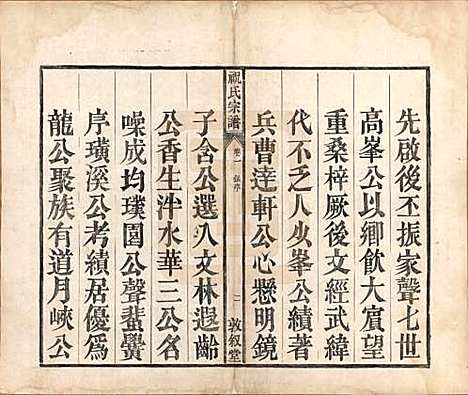 先啟後丕振家聲七世
高峯公以鄉飲大賓望
重桑梓厥後文經武緯
代不乏人少峯公績著
兵曹達軒公心懸明鏡
祝氏宗譜 卷一
敦叙堂
子含公選入文林遐齡
公香生泮水華三公名
噪成均璞園公聲蜚黌
序璜溪公考績居優爲
龍公聚族有道月峽公